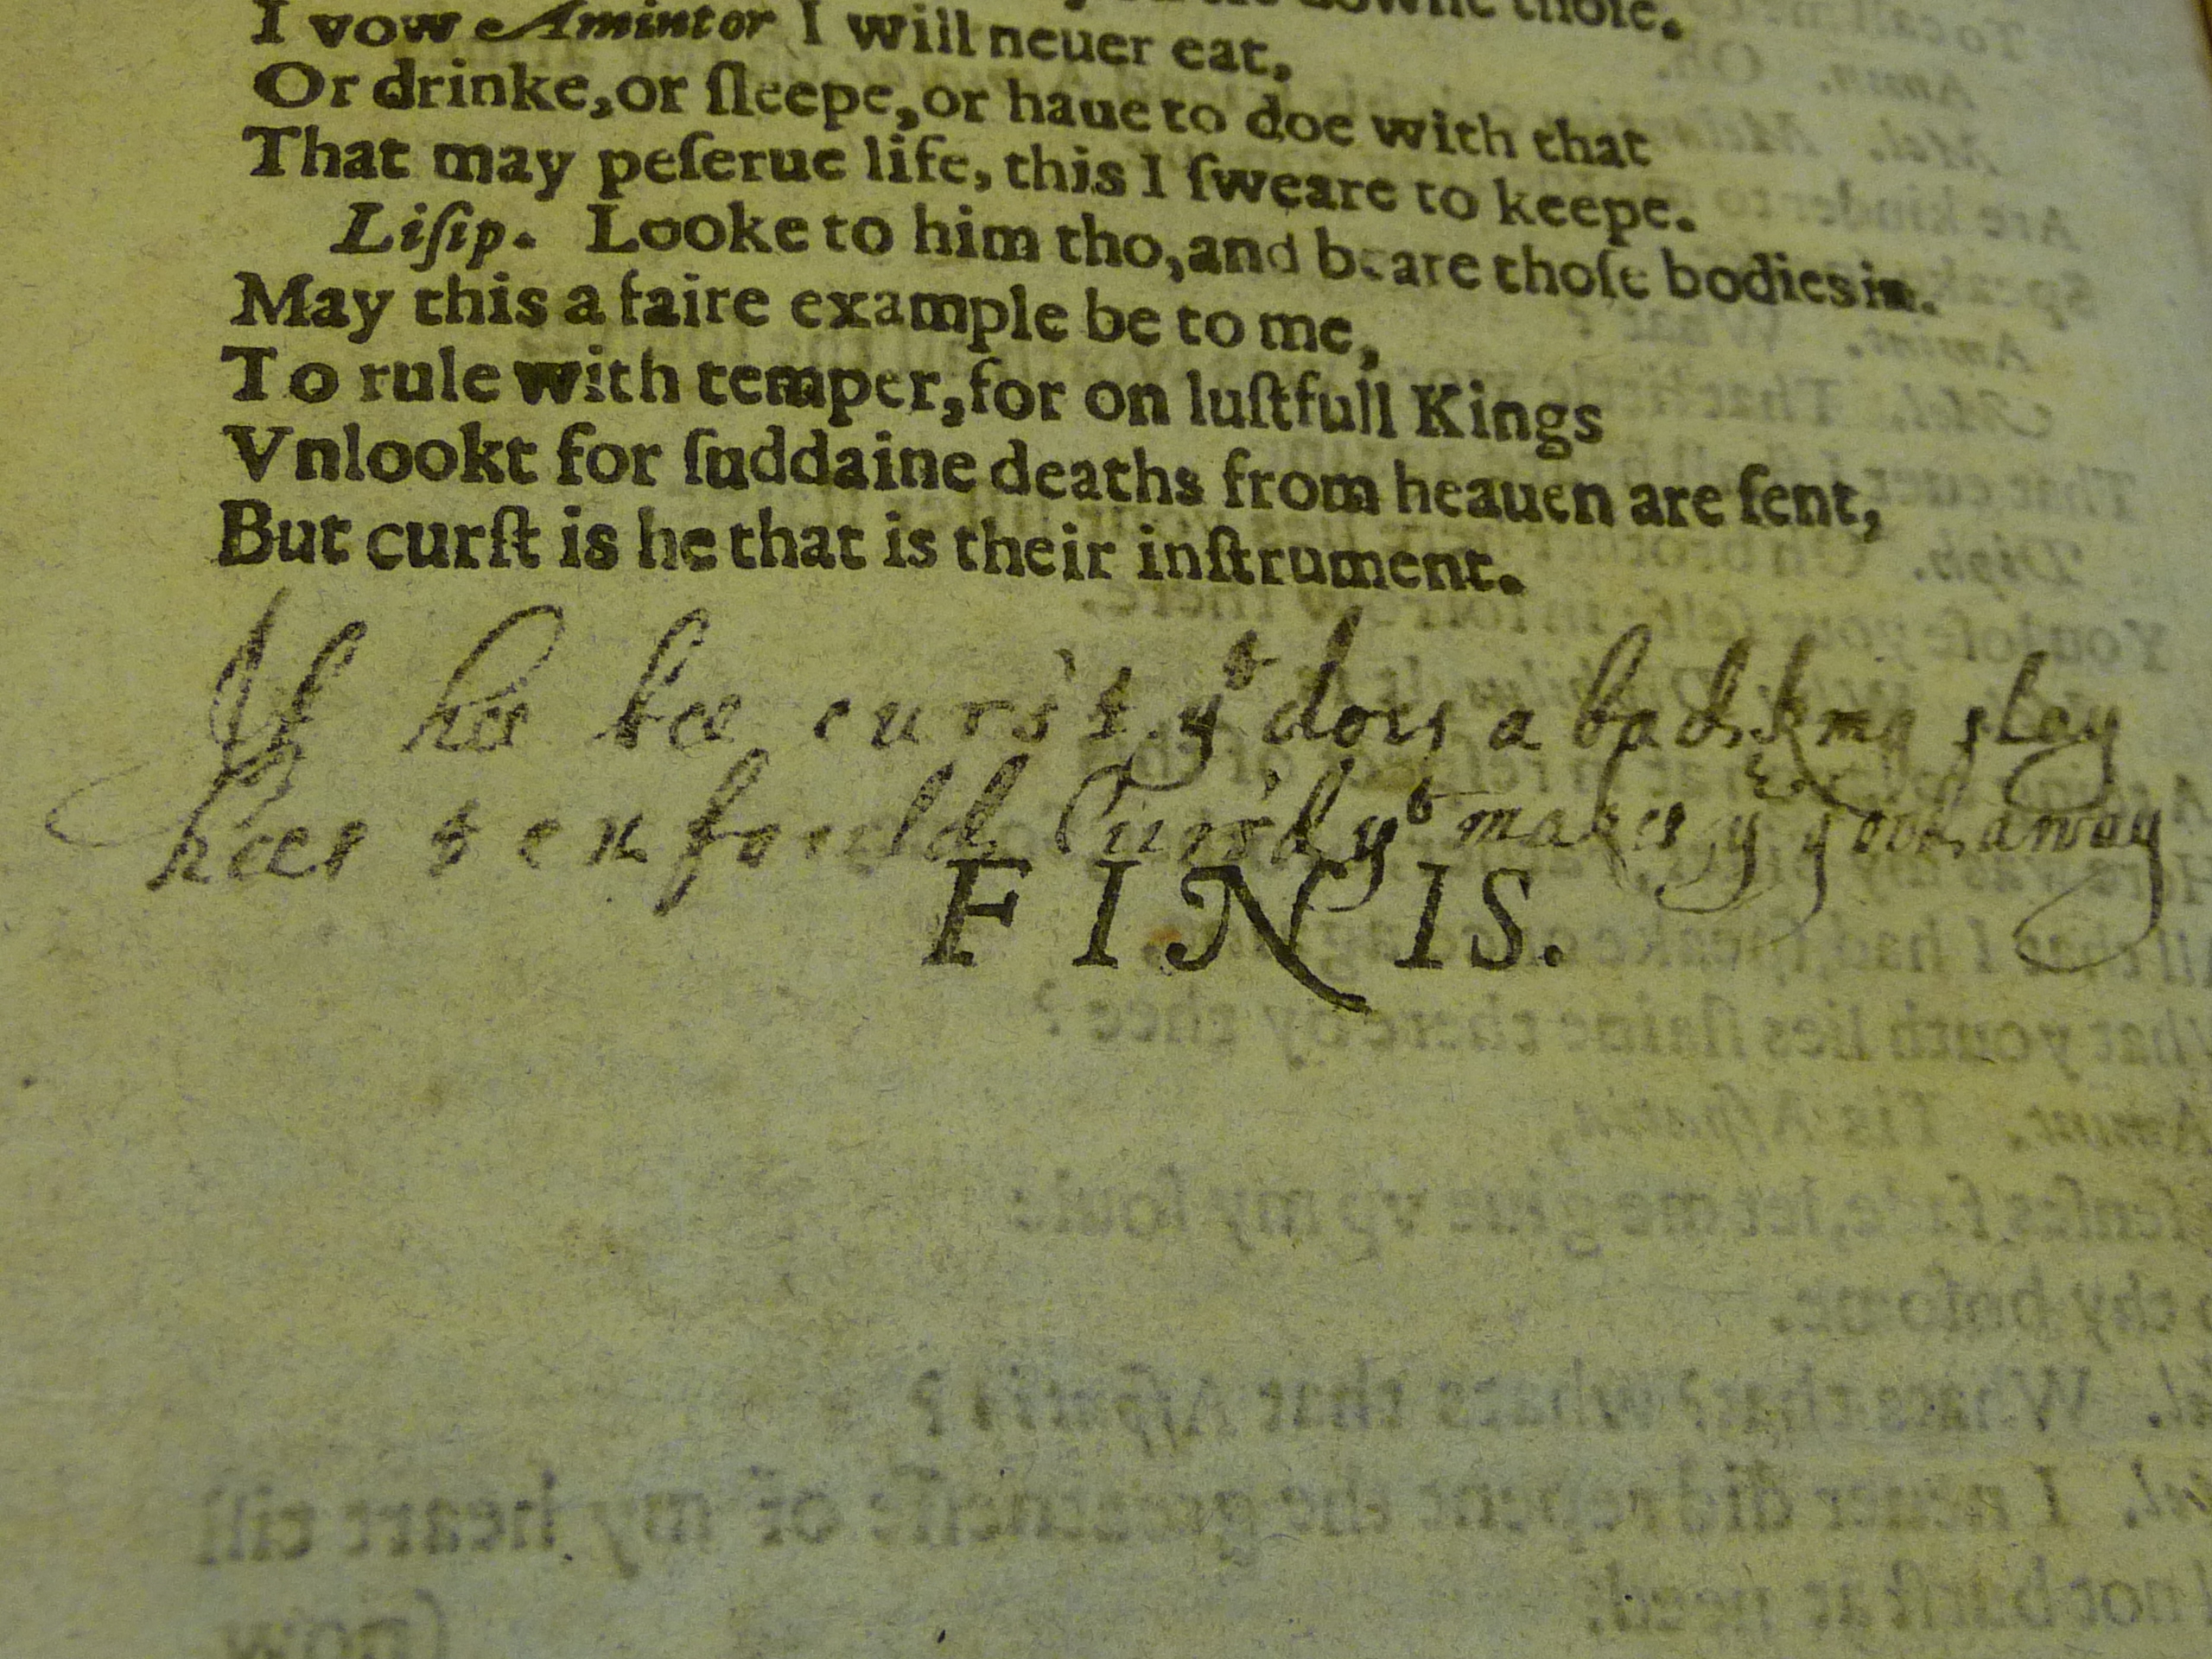 I vow Amintor I will neuer eat,
Or drinke, or ſleepe, or haue to doe with that
That may peſerue life, this I ſweare to keepe.
Liſip. Looke to him tho, and beare thoſe bodies in.
May this a faire example be to me,
To rule with temper, for on luſtfull Kings
Vnlookt for ſuddaine deaths from heauen are ſent,
But curſt is he that is their inſtrument.
If hee bee curs't yt doys a bad king slay
hees tenfould Curs'd yt makes ye good away
FINIS.